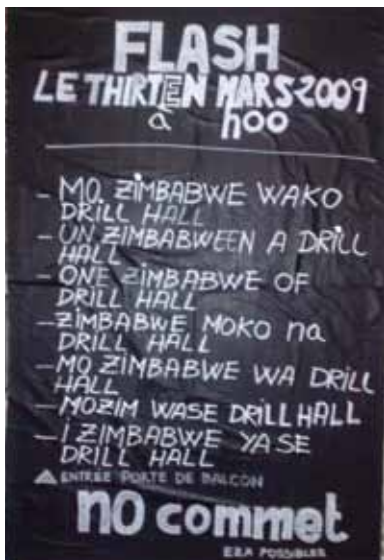 FLASH
LE THIRTEEN MARS-2009
à hoo
- MO ZIMBABWE WAKO
DRILL HALL
- UN ZIMBABWEEN A DRILL
HALL
- ONE ZIMBABWE OF
DRILL HALL
- ZIMBABWE MOKO na
DRILL HALL
- MO ZIMBABWE WA DRILL
HALL
- MOZIM WASE DRILL HALL
- I ZIMBABWE YASE
DRILL HALL
ENTREE PORTE DE BALCON
no commet
POSSIBLES